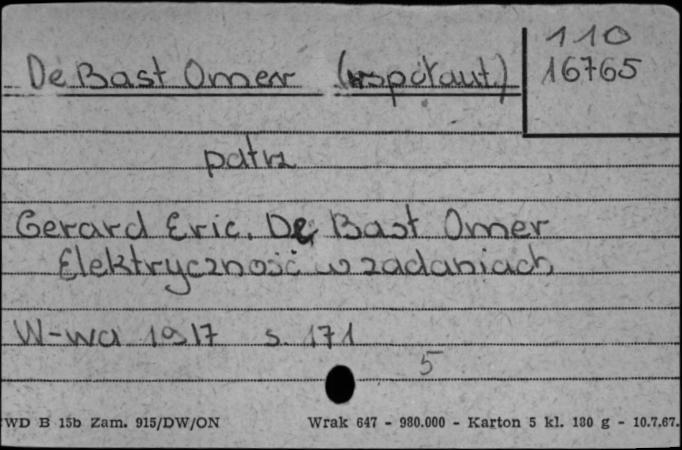 110
De Bast Omer (współaut.) 16765
patrz
Gerard Eric. De Bast Omer
Elektryczność w zadaniach
W-wa 1917 s. 171
5
WD B 15b Zam. 915/DW/ON Wrak 647 - 980.000 - Karton 5 kl. 180 g - 10.7.67.